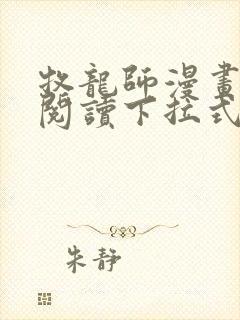 牧龍師漫畫
閱讀下拉式
朱靜